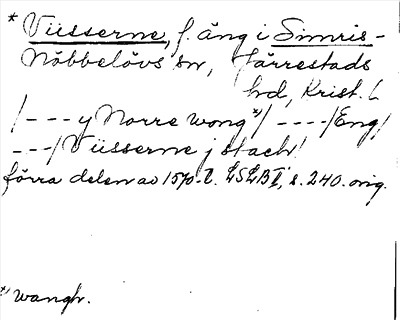 * Vüsserne, f. äng i Simris-
Nöbbelövs sn, Järrestads
hd, Krist. L
/--- y Norre wong *)/ ----/Eng/
---/ Vüsserne j stach/
förra delen av 1570-t. LSLB II, s. 240. orig.
*) wangh.